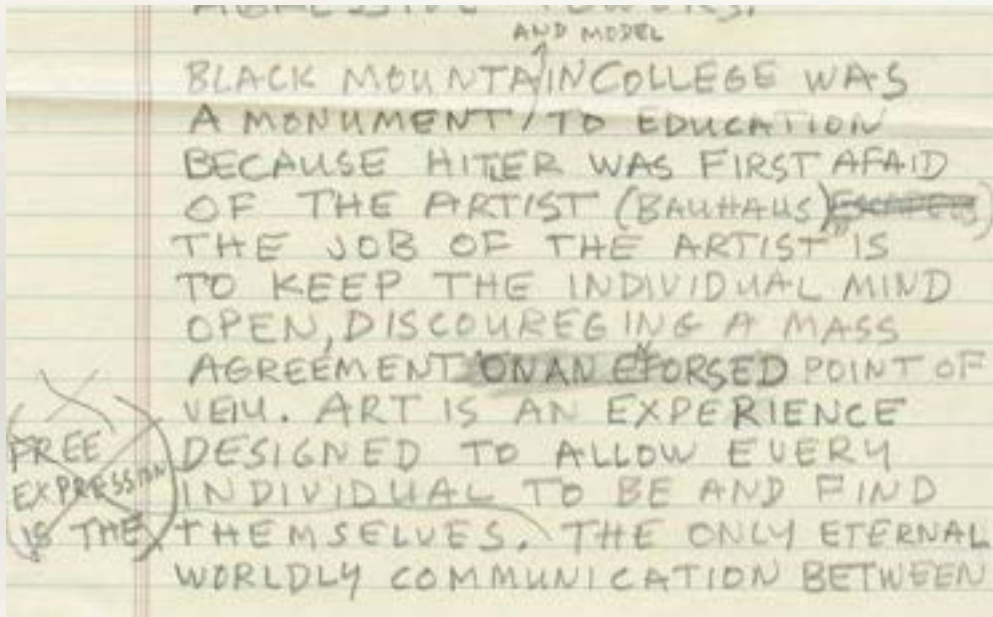 AGRESSIVE POWERS.
AND MODEL
BLACK MOUNTAIN COLLEGE WAS
A MONUMENT TO EDUCATION
BECAUSE HITLER WAS FIRST AFAID
OF THE ARTIST (BAUHAUS)
THE JOB OF THE ARTIST IS
TO KEEP THE INDIVIDUAL MIND
OPEN, DISCOUREGING A MASS
AGREEMENT ON AN EFORSED POINT OF
VEIW. ART IS AN EXPERIENCE
DESIGNED TO ALLOW EVERY
INDIVIDUAL TO BE AND FIND
THEMSELVES. THE ONLY ETERNAL
WORLDLY COMMUNICATION BETWEEN
FREE
EXPRESSION
IS THE